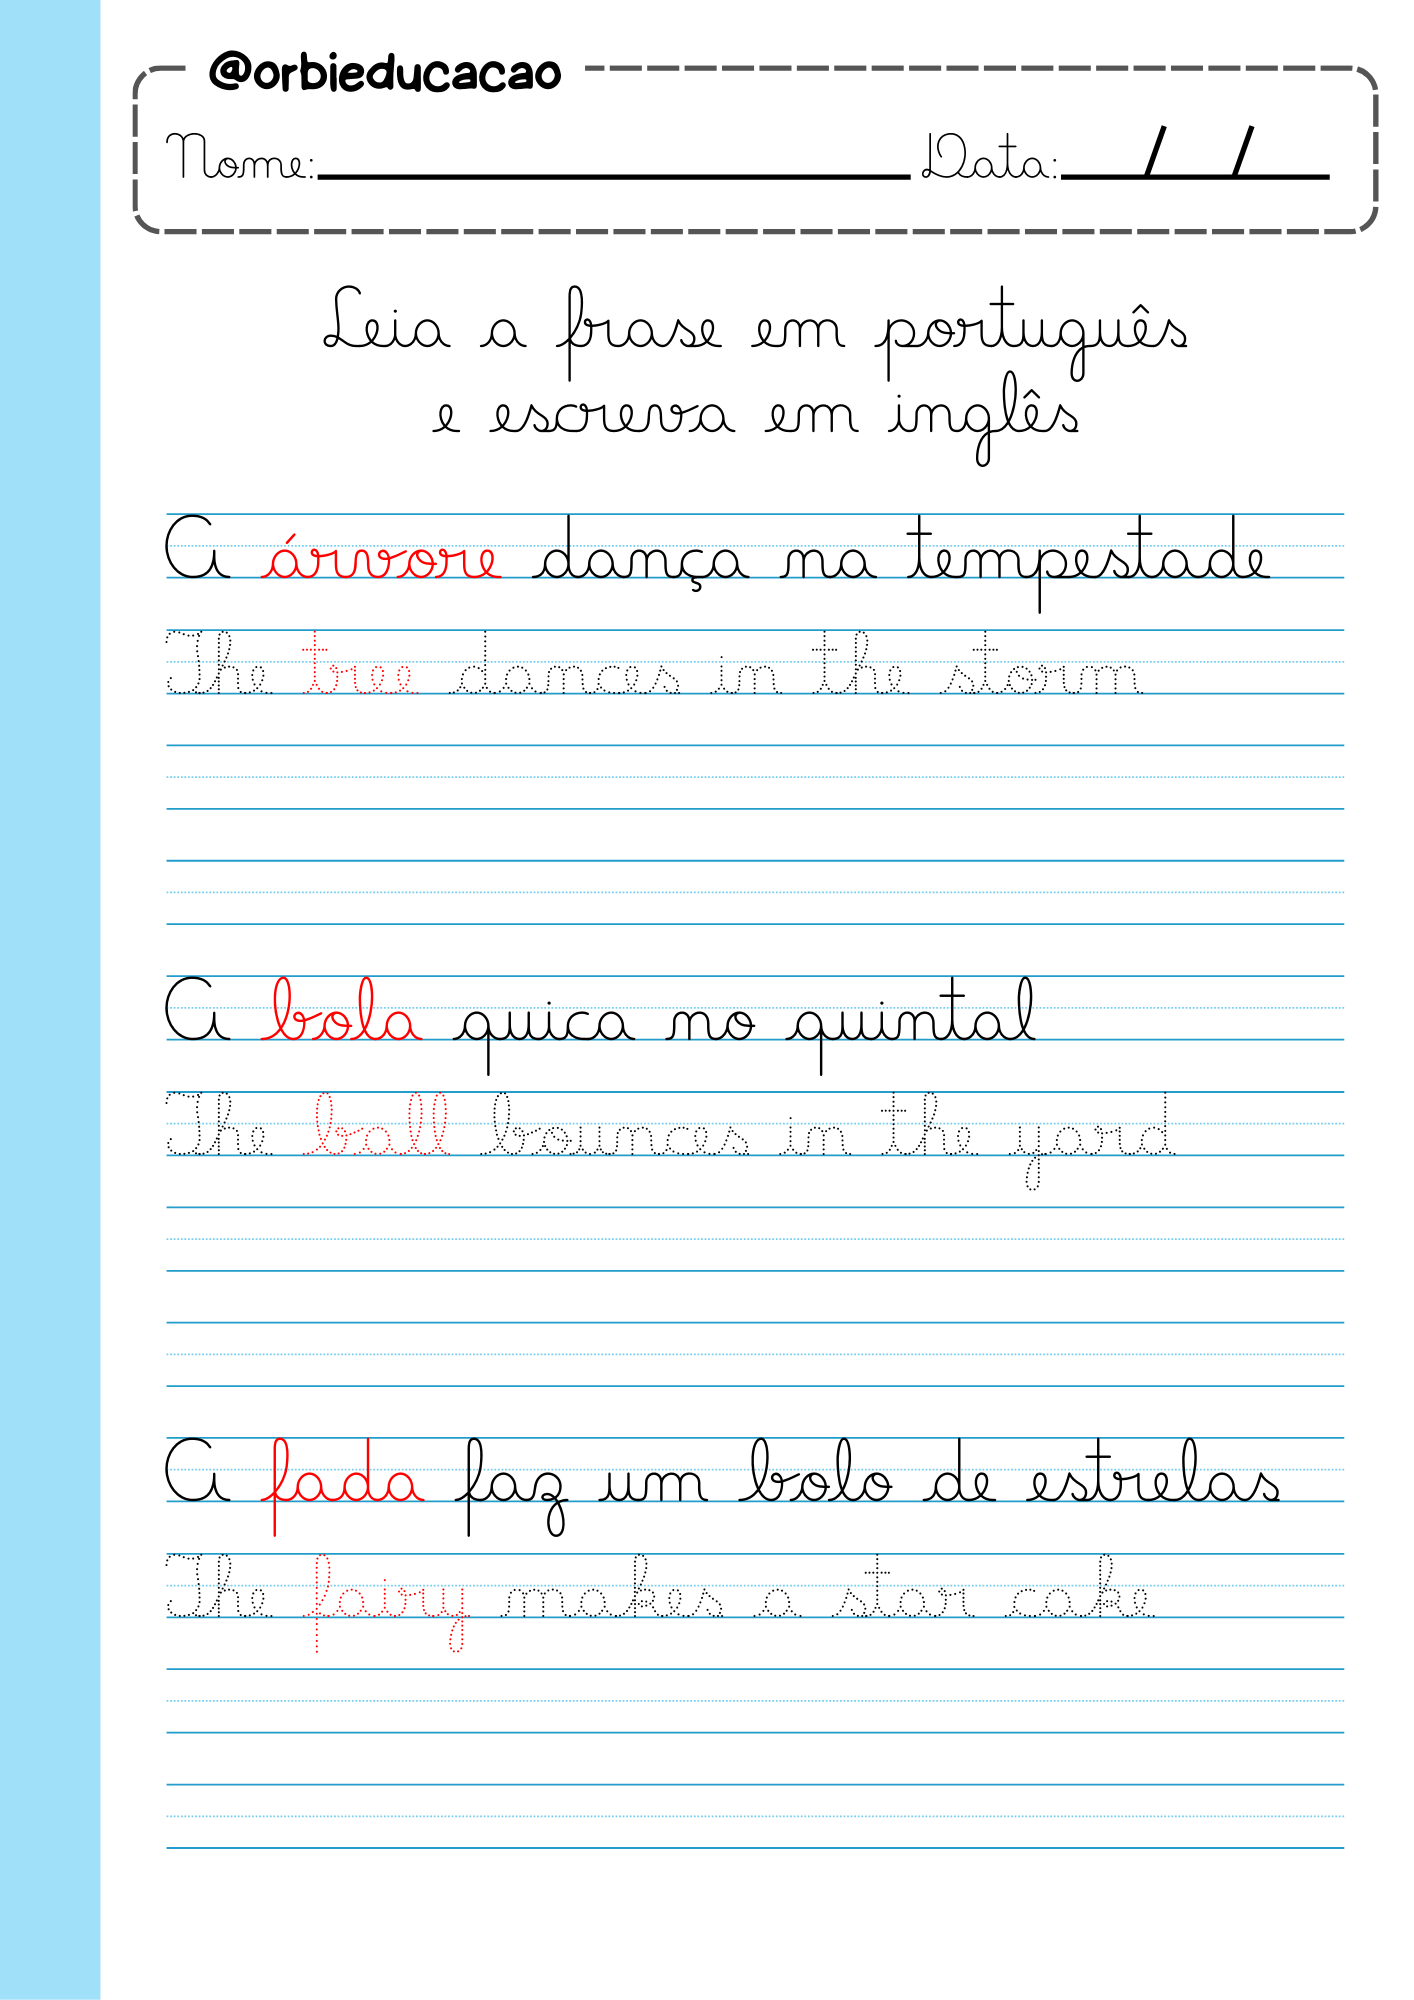 @orbieducacao
Nome: Data: / /
Leia a frase em português
e escreva em inglês
A árvore dança na tempestade
The tree dances in the storm
A bola quica no quintal
The ball bounces in the yard
A fada faz um bolo de estrelas
The fairy makes a star cake